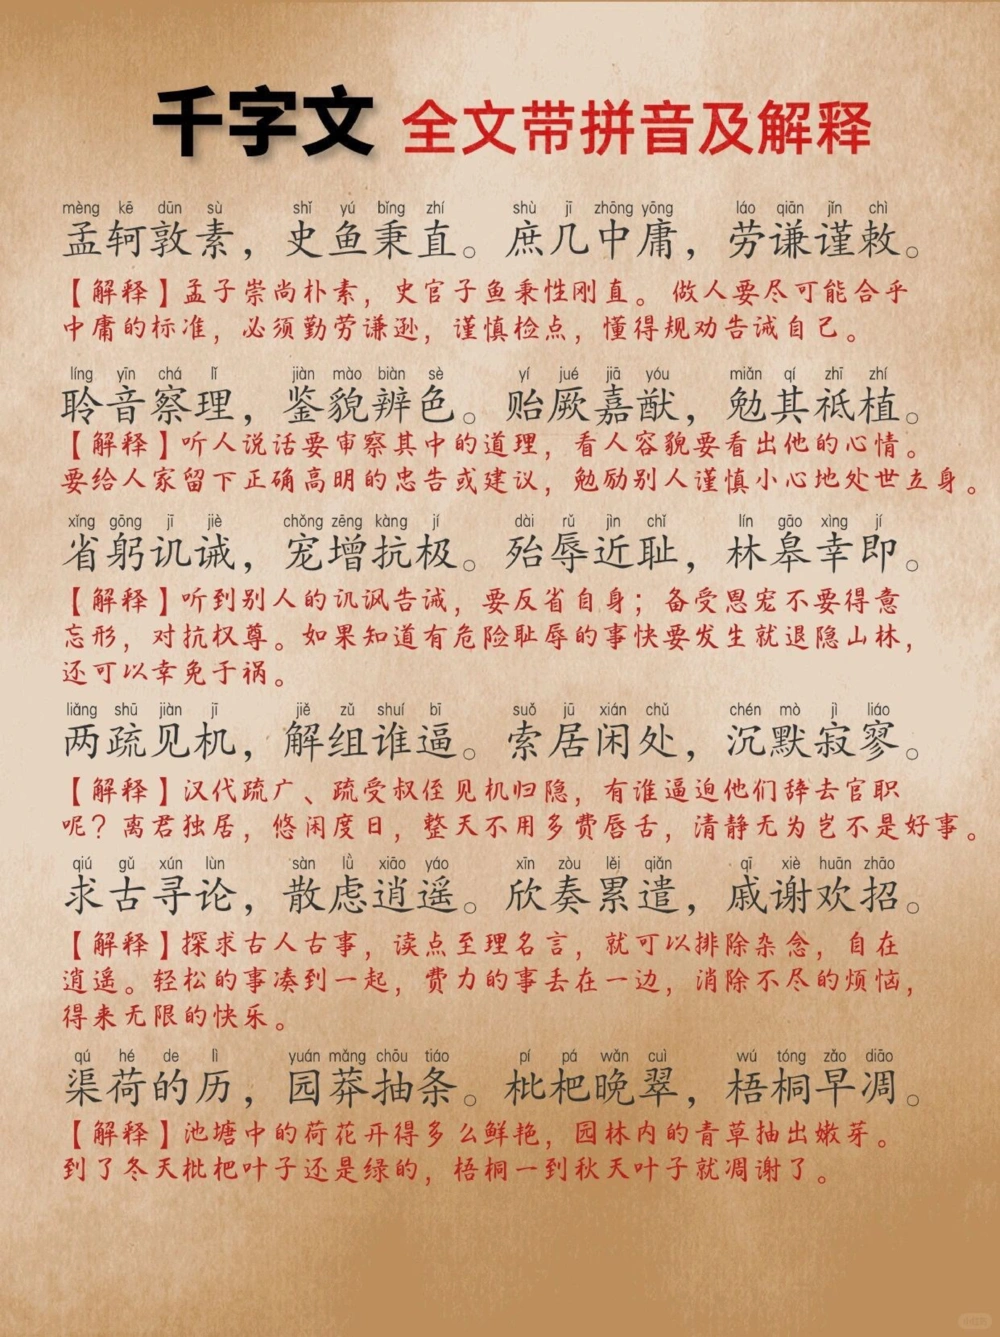 千字文 全文带拼音及解释
mèng kē dūn sù shǐ yú bǐng zhí shù jī zhōng yōng láo qiān jǐn chì
孟轲敦素，史鱼秉直。庶几中庸，劳谦谨敕。
【解释】孟子崇尚朴素，史官子鱼秉性刚直。做人要尽可能合乎
中庸的标准，必须勤劳谦逊，谨慎检点，懂得规劝告诫自己。
líng yīn chá lǐ jiàn mào biàn sè yí jué jiā yóu miǎn qí zhī zhí
聆音察理，鉴貌辨色。贻厥嘉猷，勉其祗植。
【解释】听人说话要审察其中的道理，看人容貌要看出他的心情。
要给人家留下正确高明的忠告或建议，勉励别人谨慎小心地处世立身。
xǐng gōng jī jiè chǒng zēng kàng jí dài rǔ jìn chǐ lín gāo xìng jí
省躬讥诫，宠增抗极。殆辱近耻，林皋幸即。
【解释】听到别人的讥讽告诫，要反省自身；备受恩宠不要得意
忘形，对抗权尊。如果知道有危险耻辱的事快要发生就退隐山林，
还可以幸免于祸。
liǎng shū jiàn jī jiě zǔ shuí bī suǒ jū xián chǔ chén mò jì liáo
两疏见机，解组谁逼。索居闲处，沉默寂寥。
【解释】汉代疏广、疏受叔侄见机归隐，有谁逼迫他们辞去官职
呢？离君独居，悠闲度日，整天不用多费唇舌，清静无为岂不是好事。
qiú gǔ xún lùn sàn lǜ xiāo yáo xīn zòu lěi qiǎn qī xiè huān zhāo
求古寻论，散虑逍遥。欣奏累遣，戚谢欢招。
【解释】探求古人古事，读点至理名言，就可以排除杂念，自在
逍遥。轻松的事凑到一起，费力的事丢在一边，消除不尽的烦恼，
得来无限的快乐。
qú hé de lì yuán mǎng chōu tiáo pí pá wǎn cuì wú tóng zǎo diāo
渠荷的历，园莽抽条。枇杷晚翠，梧桐早凋。
【解释】池塘中的荷花开得多么鲜艳，园林内的青草抽出嫩芽。
到了冬天枇杷叶子还是绿的，梧桐一到秋天叶子就凋谢了。